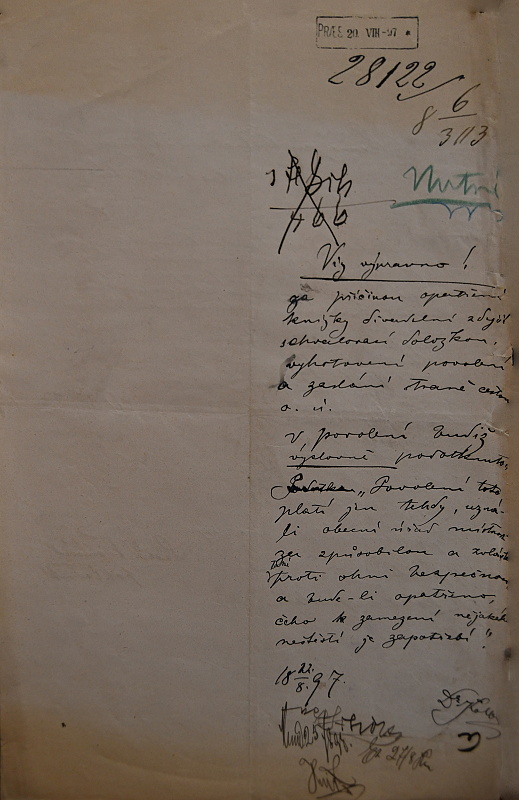 PRÆS 20 VIII -97
28122
8 6/3113
Nutné
Viz výpravno!
za příčinou opatření
knížky divadelní zdejší
schvalovací doložkou,
vyhotovení povolení
a zaslání straně cestou
o. ú.
V povolení budiž
výslovně podotknuto:
„Povolení toto
platí jen tehdy, uzná-
li obecní úřad místnost
za způsobilou a zvláště
proti ohni bezpečnou
a bude-li opatřeno,
čeho k zamezení nějakého
neštěstí je zapotřebí."
18 22/8 97.
27/8